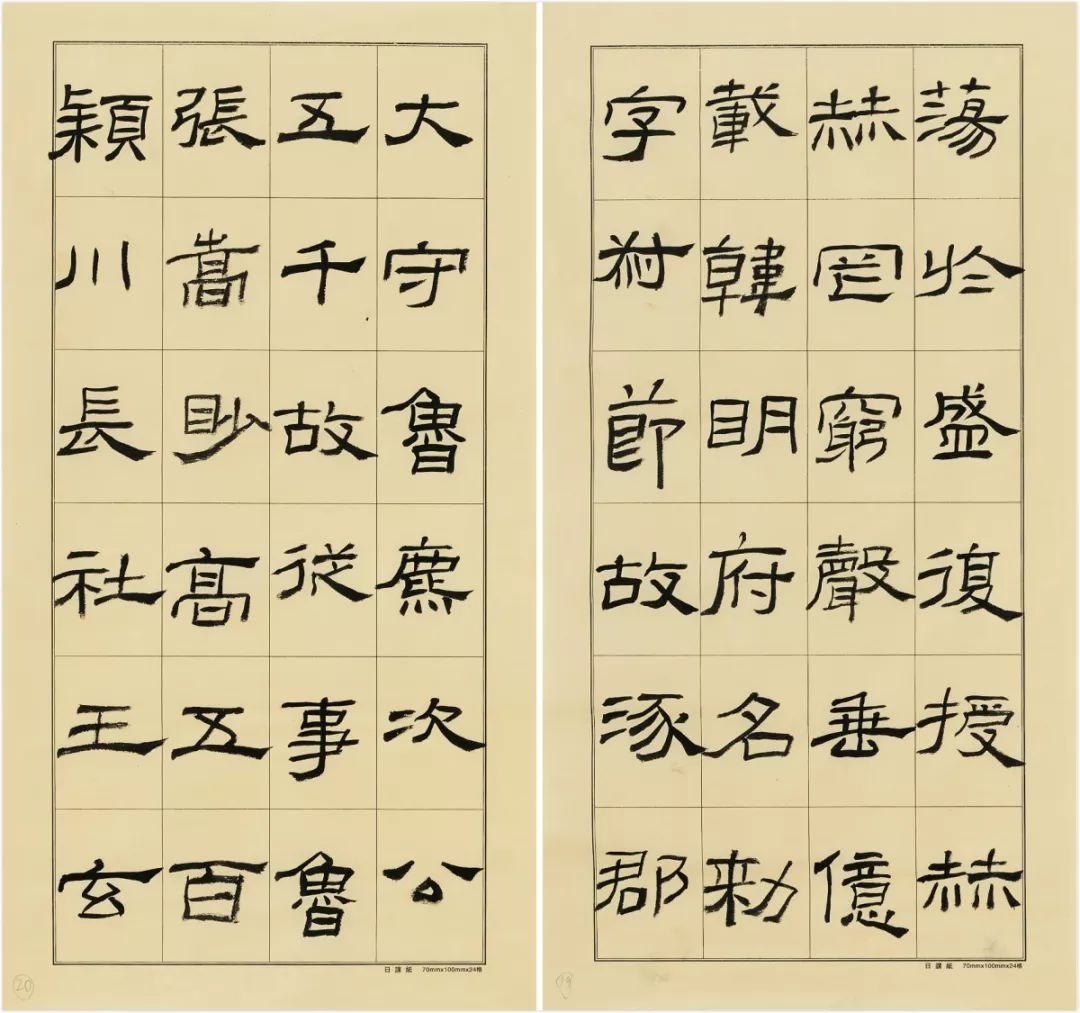 蕩於盛復授赫
赫罔窮聲垂億
載韓明府名勑
字叔節故涿郡
日課紙 70mmx100mmx24格
19
大守魯麃次公
五千故從事魯
張嵩眇高五百
穎川長社王玄
日課紙 70mmx100mmx24格
20